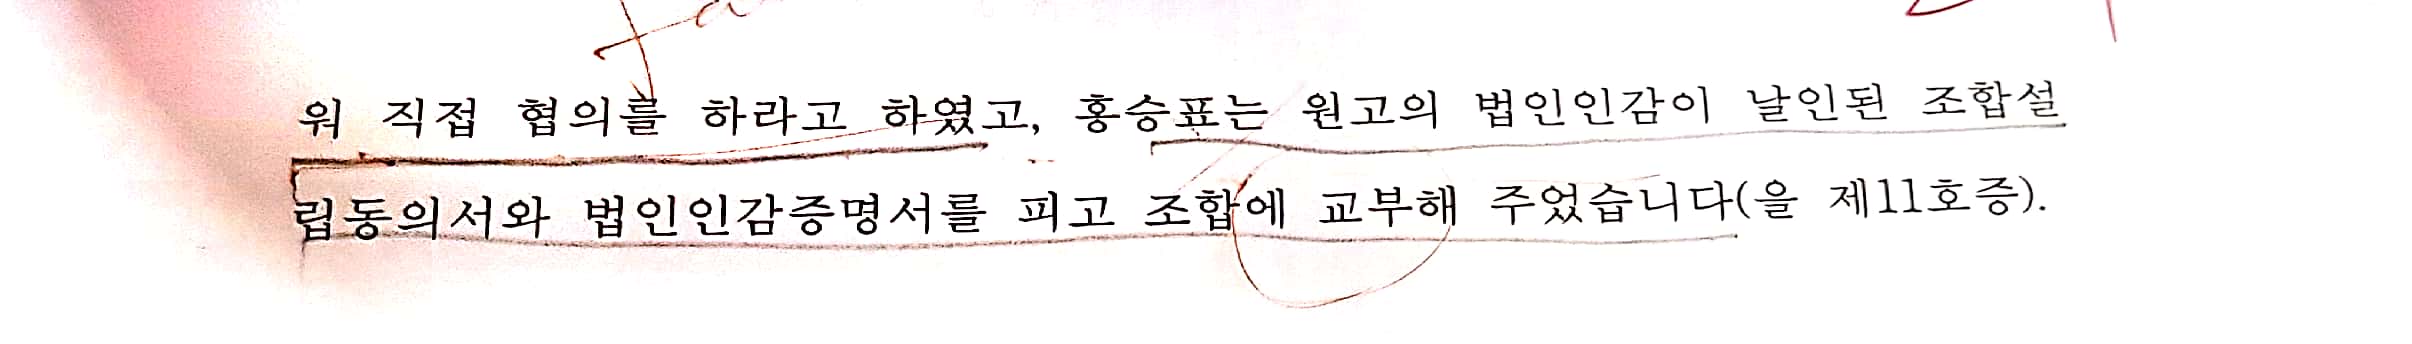 워 직접 협의를 하라고 하였고, 홍승표는 원고의 법인인감이 날인된 조합설
립동의서와 법인인감증명서를 피고 조합에 교부해 주었습니다(을 제11호증).